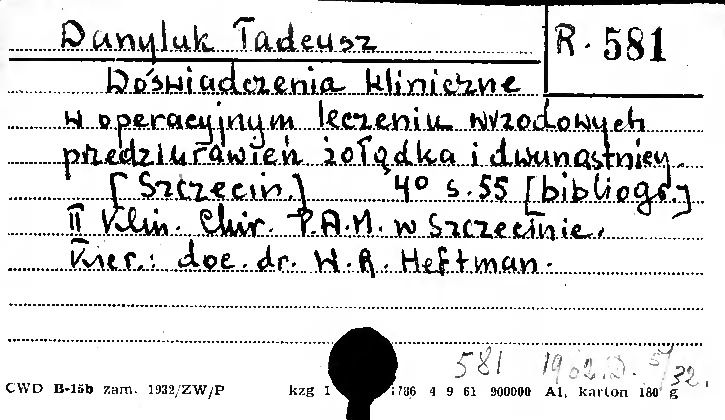 Danyluk Tadeusz
R. 581
Doświadczenia kliniczne
w operacyjnym leczeniu wrzodowych
przedziurawień żołądka i dwunastnicy.
[Szczecin.] 4° s.55 [bibliogr.]
II Klin. Chir. P.A.M. w Szczecinie.
Kier.: doc. dr. W.R. Heftman.
581 1962.D. 5/32.
CWD B-15b zam. 1932/ZW/P kzg 1 1786 4 9 61 900000 A1, karton 180 g